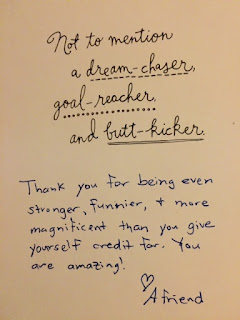 Not to mention
a dream-chaser,
goal-reacher,
and butt-kicker.
Thank you for being even
stronger, funnier, + more
magnificent than you give
yourself credit for. You
are amazing!
♡
A friend